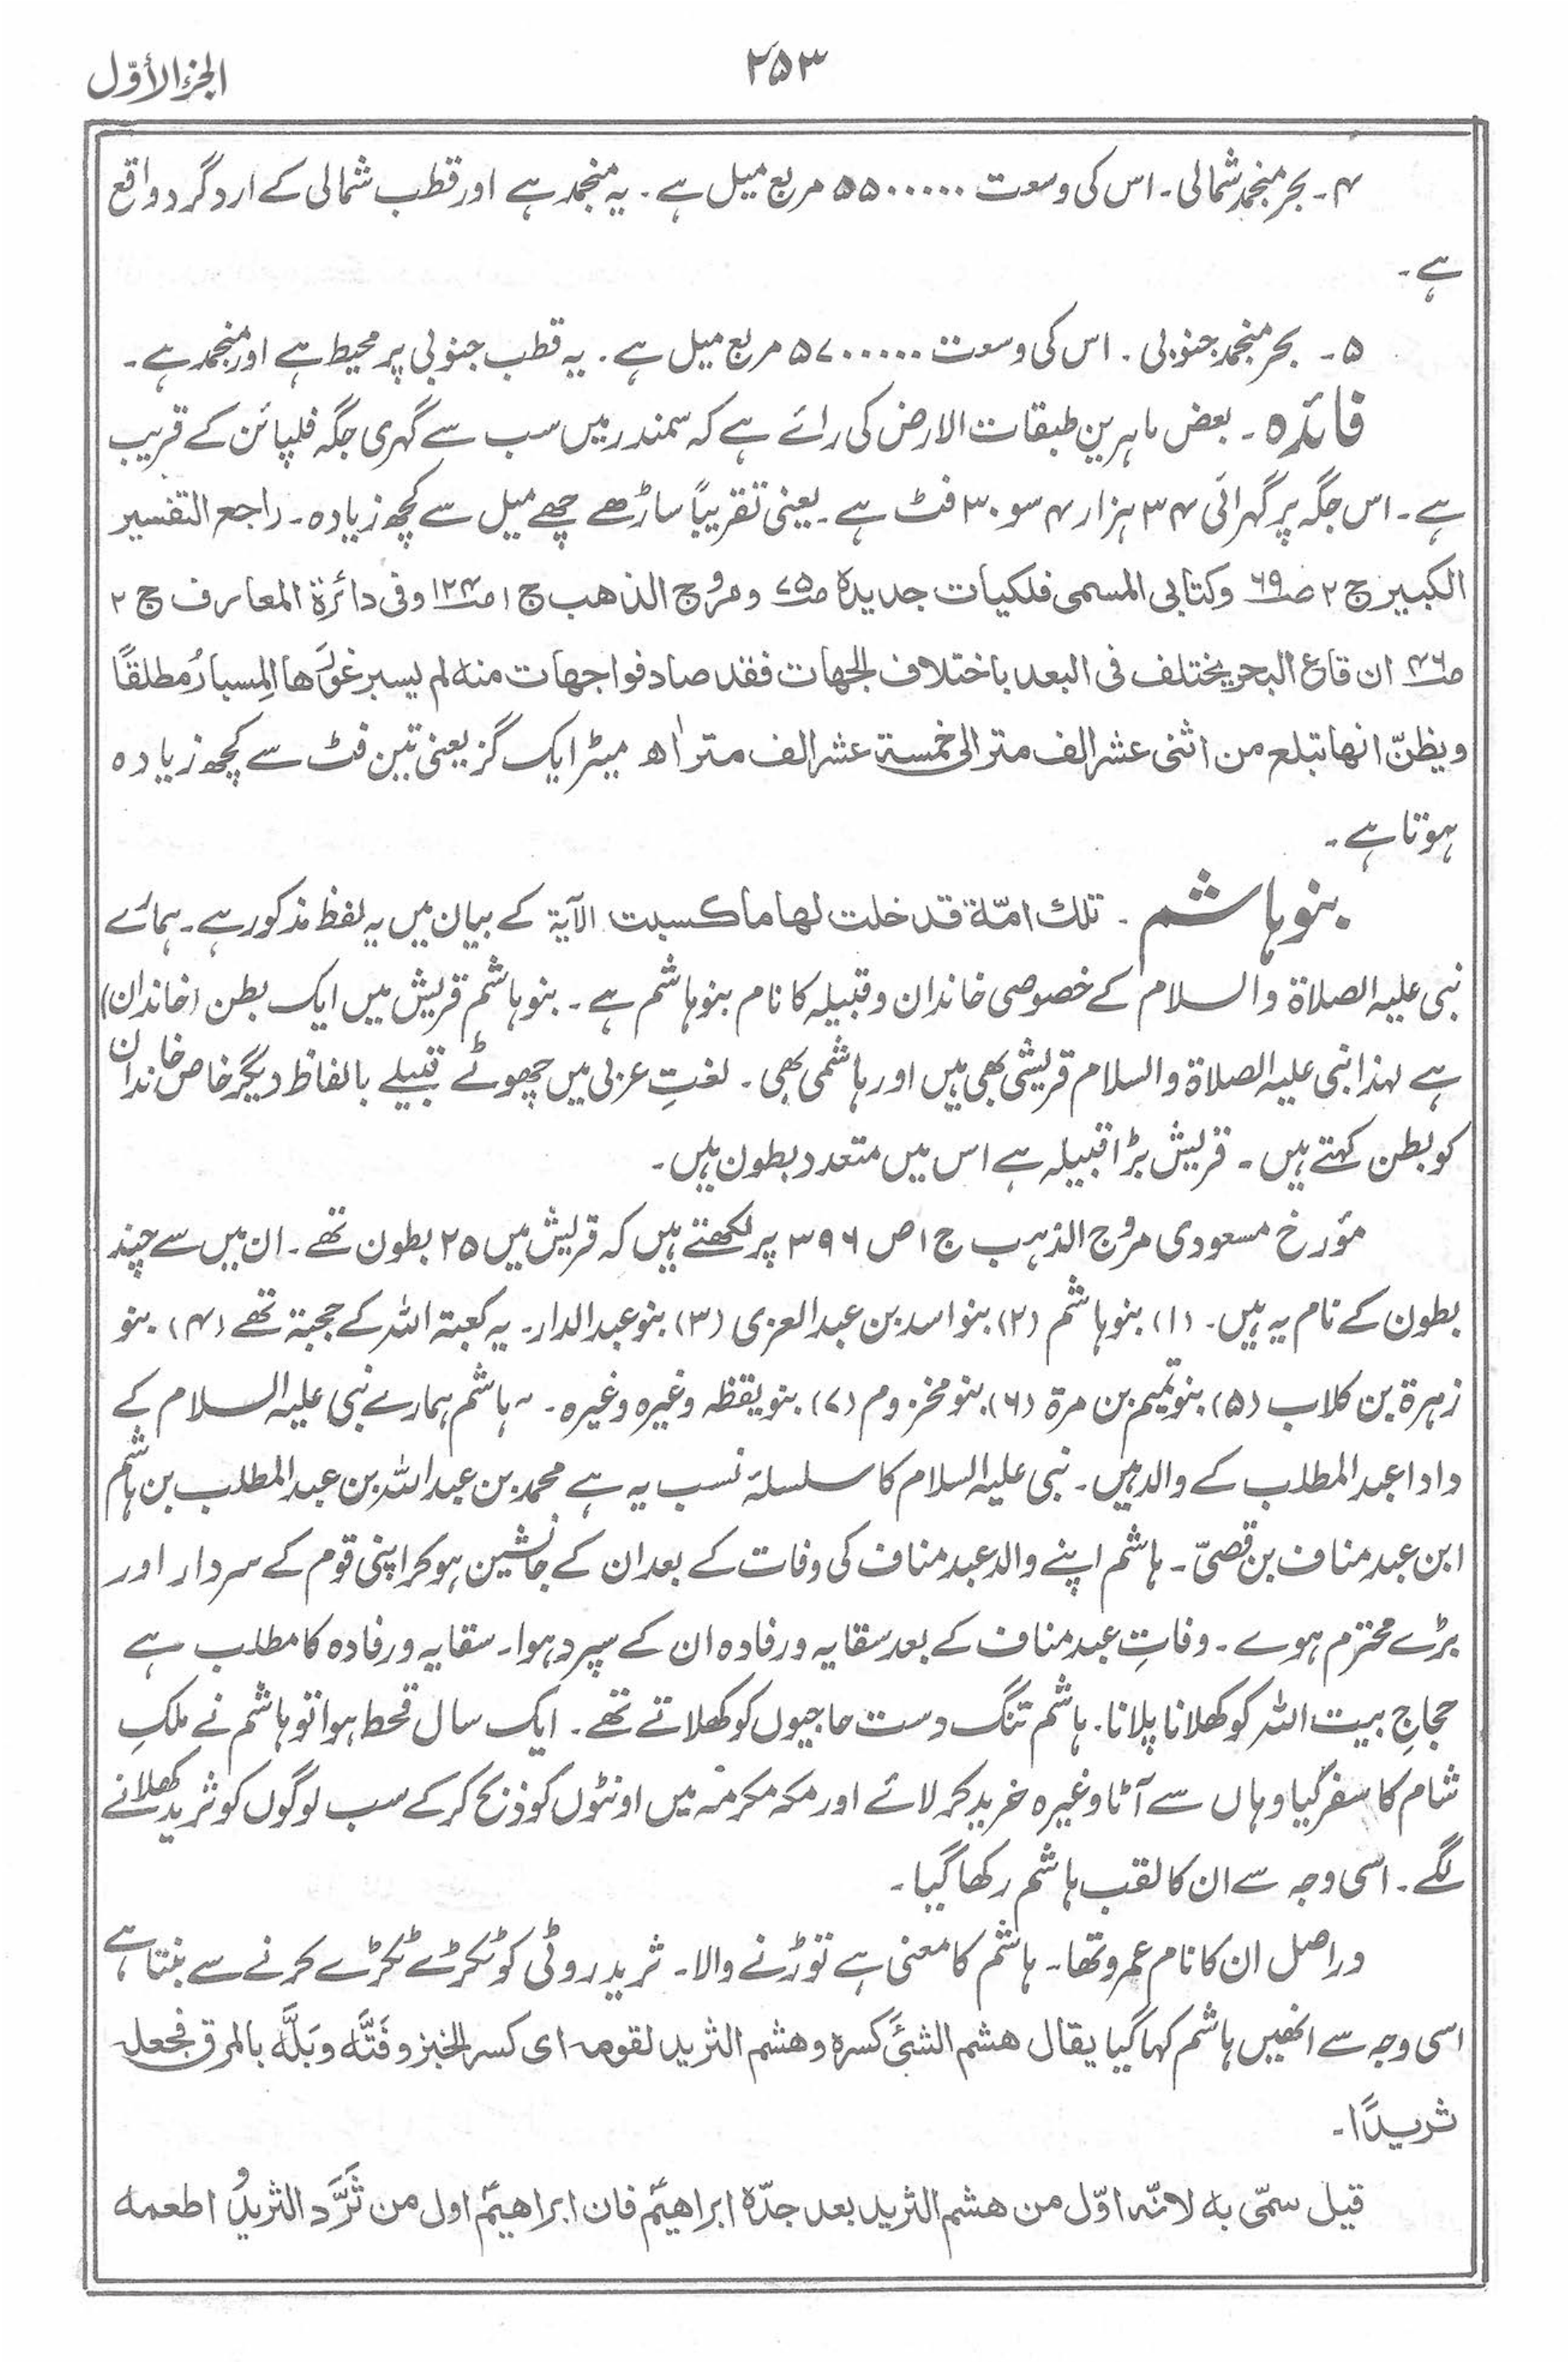 الجزء الأوّل
۲۵۳
۴۔ بحر منجمد شمالی۔ اس کی وسعت ۵۵۰۰۰۰۰ مربع میل ہے۔ یہ منجمد ہے اور قطب شمالی کے ارد گرد واقع
ہے۔
۵۔ بحر منجمد جنوبی۔ اس کی وسعت ۵۷۰۰۰۰۰ مربع میل ہے۔ یہ قطب جنوبی پر محیط ہے اور منجمد ہے۔
فائدہ۔ بعض ماہرین طبقات الارض کی رائے ہے کہ سمندر میں سب سے گہری جگہ فلپائن کے قریب
ہے۔ اس جگہ پر گہرائی ۳۴ ہزار ۴ سو ۳۰ فٹ ہے۔ یعنی تقریباً ساڑھے چھے میل سے کچھ زیادہ۔ راجع التفسیر
الکبیر ج ۲ ص۶۹ وکتابی المسمی فلکیات جدیدہ ص۷۵ ومروج الذھب ج ۱ ص۱۲۴ وفی دائرۃ المعارف ج ۲
ص۴۶ ان قاع البحر یختلف فی البعد باختلاف الجهات فقد صادفوا جهات منه لم یسبر غورَها المِسبارُ مطلقًا
ویظنّ انها تبلع من اثنی عشر الف متر الی خمسة عشر الف متر اھ میٹر ایک گز یعنی تین فٹ سے کچھ زیادہ
ہوتا ہے۔
بنو ہاشم۔ تلك امّة قد خلت لها ما كسبت الآیۃ کے بیان میں یہ لفظ مذکور ہے۔ ہمارے
نبی علیہ الصلاۃ والسلام کے خصوصی خاندان و قبیلہ کا نام بنو ہاشم ہے۔ بنو ہاشم قریش میں ایک بطن (خاندان)
ہے لہذا نبی علیہ الصلاۃ والسلام قریشی بھی ہیں اور ہاشمی بھی۔ لغتِ عربی میں چھوٹے قبیلے بالفاظ دیگر خاص خاندان
کو بطن کہتے ہیں۔ قریش بڑا قبیلہ ہے اس میں متعدد بطون ہیں۔
مؤرخ مسعودی مروج الذہب ج ۱ ص ۳۹۶ پر لکھتے ہیں کہ قریش میں ۲۵ بطون تھے۔ ان میں سے چند
بطون کے نام یہ ہیں۔ (۱) بنو ہاشم (۲) بنو اسد بن عبد العزی (۳) بنو عبد الدار۔ یہ کعبۃ اللہ کے حجبۃ تھے (۴) بنو
زہرۃ بن کلاب (۵) بنو تمیم بن مرۃ (۶) بنو مخزوم (۷) بنو یقظہ وغیرہ وغیرہ۔ ہاشم ہمارے نبی علیہ السلام کے
دادا عبد المطلب کے والد ہیں۔ نبی علیہ السلام کا سلسلۂ نسب یہ ہے محمد بن عبد اللہ بن عبد المطلب بن ہاشم
ابن عبد مناف بن قصیّ۔ ہاشم اپنے والد عبد مناف کی وفات کے بعد ان کے جانشین ہوکر اپنی قوم کے سردار اور
بڑے محترم ہوے۔ وفاتِ عبد مناف کے بعد سقایہ ورفادہ ان کے سپرد ہوا۔ سقایہ ورفادہ کا مطلب ہے
حجاجِ بیت اللہ کو کھلانا پلانا۔ ہاشم تنگ دست حاجیوں کو کھلاتے تھے۔ ایک سال قحط ہوا تو ہاشم نے ملکِ
شام کا سفر کیا وہاں سے آٹا وغیرہ خرید کر لائے اور مکہ مکرمہ میں اونٹوں کو ذبح کرکے سب لوگوں کو ثرید کھلانے
لگے۔ اسی وجہ سے ان کا لقب ہاشم رکھا گیا۔
دراصل ان کا نام عمرو تھا۔ ہاشم کا معنی ہے توڑنے والا۔ ثرید روٹی کو ٹکڑے ٹکڑے کرنے سے بنتا ہے
اسی وجہ سے انھیں ہاشم کہا گیا یقال هشم الشیَٔ کسره وهشم الثرید لقومه ای کسر الخبز وفَتَّه وبَلَّه بالمرق فجعله
ثریدًا۔
قیل سمّی به لانّه اوّل من هشم الثرید بعد جدّہ ابراهیمؑ فان ابراهیمؑ اول من ثَرَّد الثریدُ و اطعمه